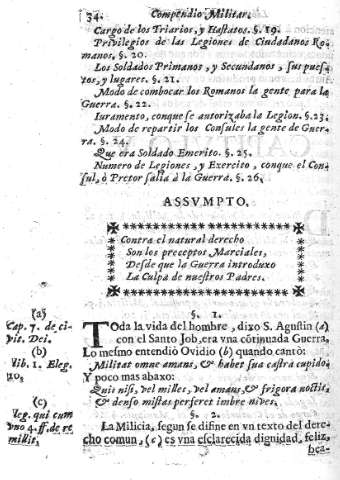 34. Compendio Militar.
Cargo de los Triarios, y Hastatos. §. 19.
Privilegios de las Legiones de Ciudadanos Ro-
manos. §. 20.
Los Soldados Primanos, y Secundanos, sus pues-
tos, y lugares. §. 21.
Modo de combocar los Romanos la gente para la
Guerra. §. 22.
Iuramento, conque se autorizaba la Legion. §. 23.
Modo de repartir los Consules la gente de Guer-
ra. §. 24.
Que era Soldado Emerito. §. 25.
Numero de Legiones, y Exercito, conque el Con-
sul, ò Pretor salia à la Guerra. §. 26.
ASSVMPTO.
Contra el natural derecho
Son los preceptos Marciales,
Desde que la Guerra introduxo
La Culpa de nuestros Padres.
§. 1.
(a)
Cap. 7. de ci-
vit. Dei.
(b)
lib. 1. Eleg.
(c)
leg. qui cum
vno 4. ff. de re
millit.
Toda la vida del hombre, dixo S. Agustin (a)
con el Santo Job, era vna cõtinuada Guerra,
Lo mesmo entendiò Ovidio (b) quando cantò:
Militat omne amans, & haber sua castra cupido
Y poco mas abaxo:
Quis nisi, vel milles, vel amans, & frigora noctis,
& denso mistas perferet imbre nives.
§. 2.
La Milicia, segun se difine en vn texto del dere-
cho comun, (c) es vna esclarecida dignidad, feliz,
hea-